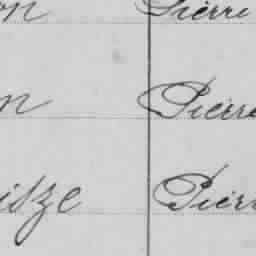 on Pierre
n Pierre
isze Pierr